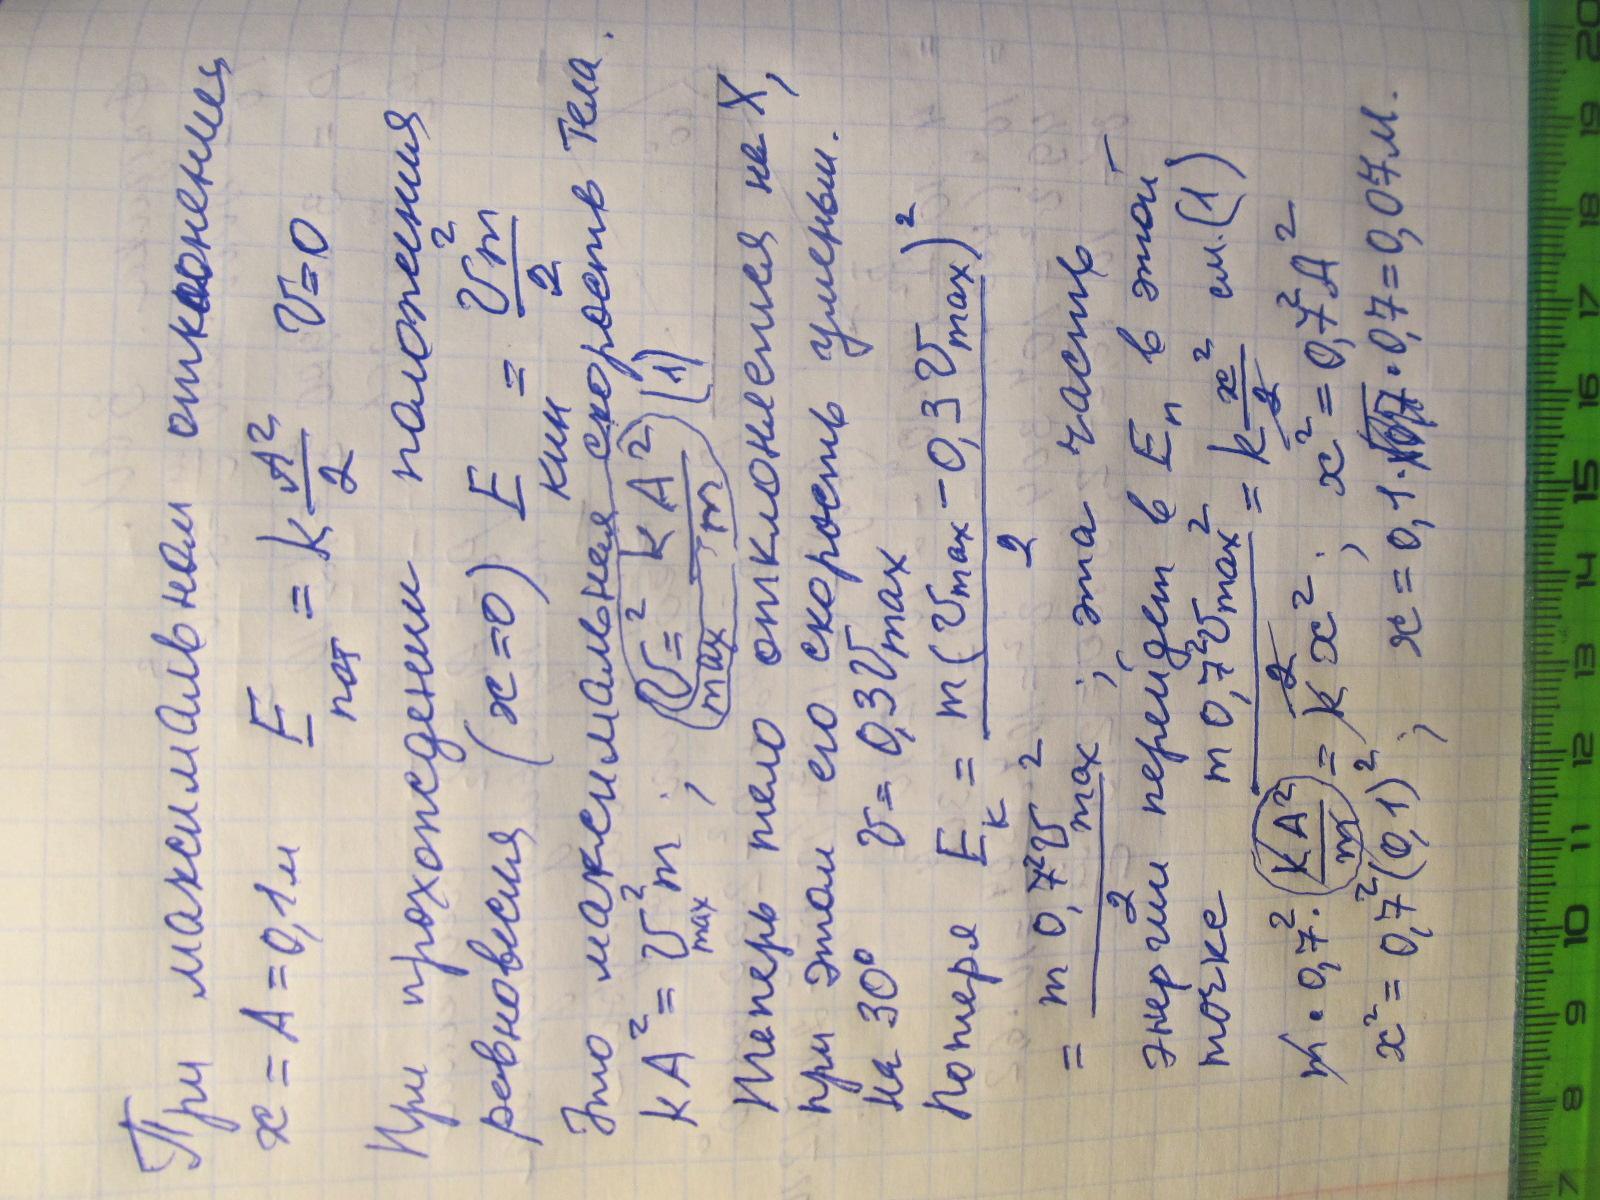 При максимальном отклонениец
x = A = 0,1м E пот = k A²/2 v = 0
При прохождении положения
равновесия (x=0) E кин = v²m/2
Это максимальная скорость тела.
kA² = v²max m ; (v²max = kA²/m) (1)
Теперь тело отклонением на X,
при этом его скорость уменьш.
на 30° v = 0,3 vmax
Потеря Eк = m(vmax - 0,3 vmax)²/2
= m 0,7² v²max/2 ; эта часть
энергии перейдет в Eп в этой
точке m 0,7² vmax²/2 = k x²/2 см. (1)
m · 0,7² · (kA²/m) = k x² ; x² = 0,7² A²
x² = 0,7² (0,1)² ; x = 0,1 · 0,7 = 0,07м.
7 8 9 10 11 12 13 14 15 16 17 18 19 20